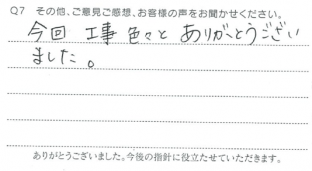 Q7 その他、ご意見ご感想、お客様の声をお聞かせください。
今回 工事 色々と ありがとうござい
ました。
ありがとうございました。今後の指針に役立たせていただきます。